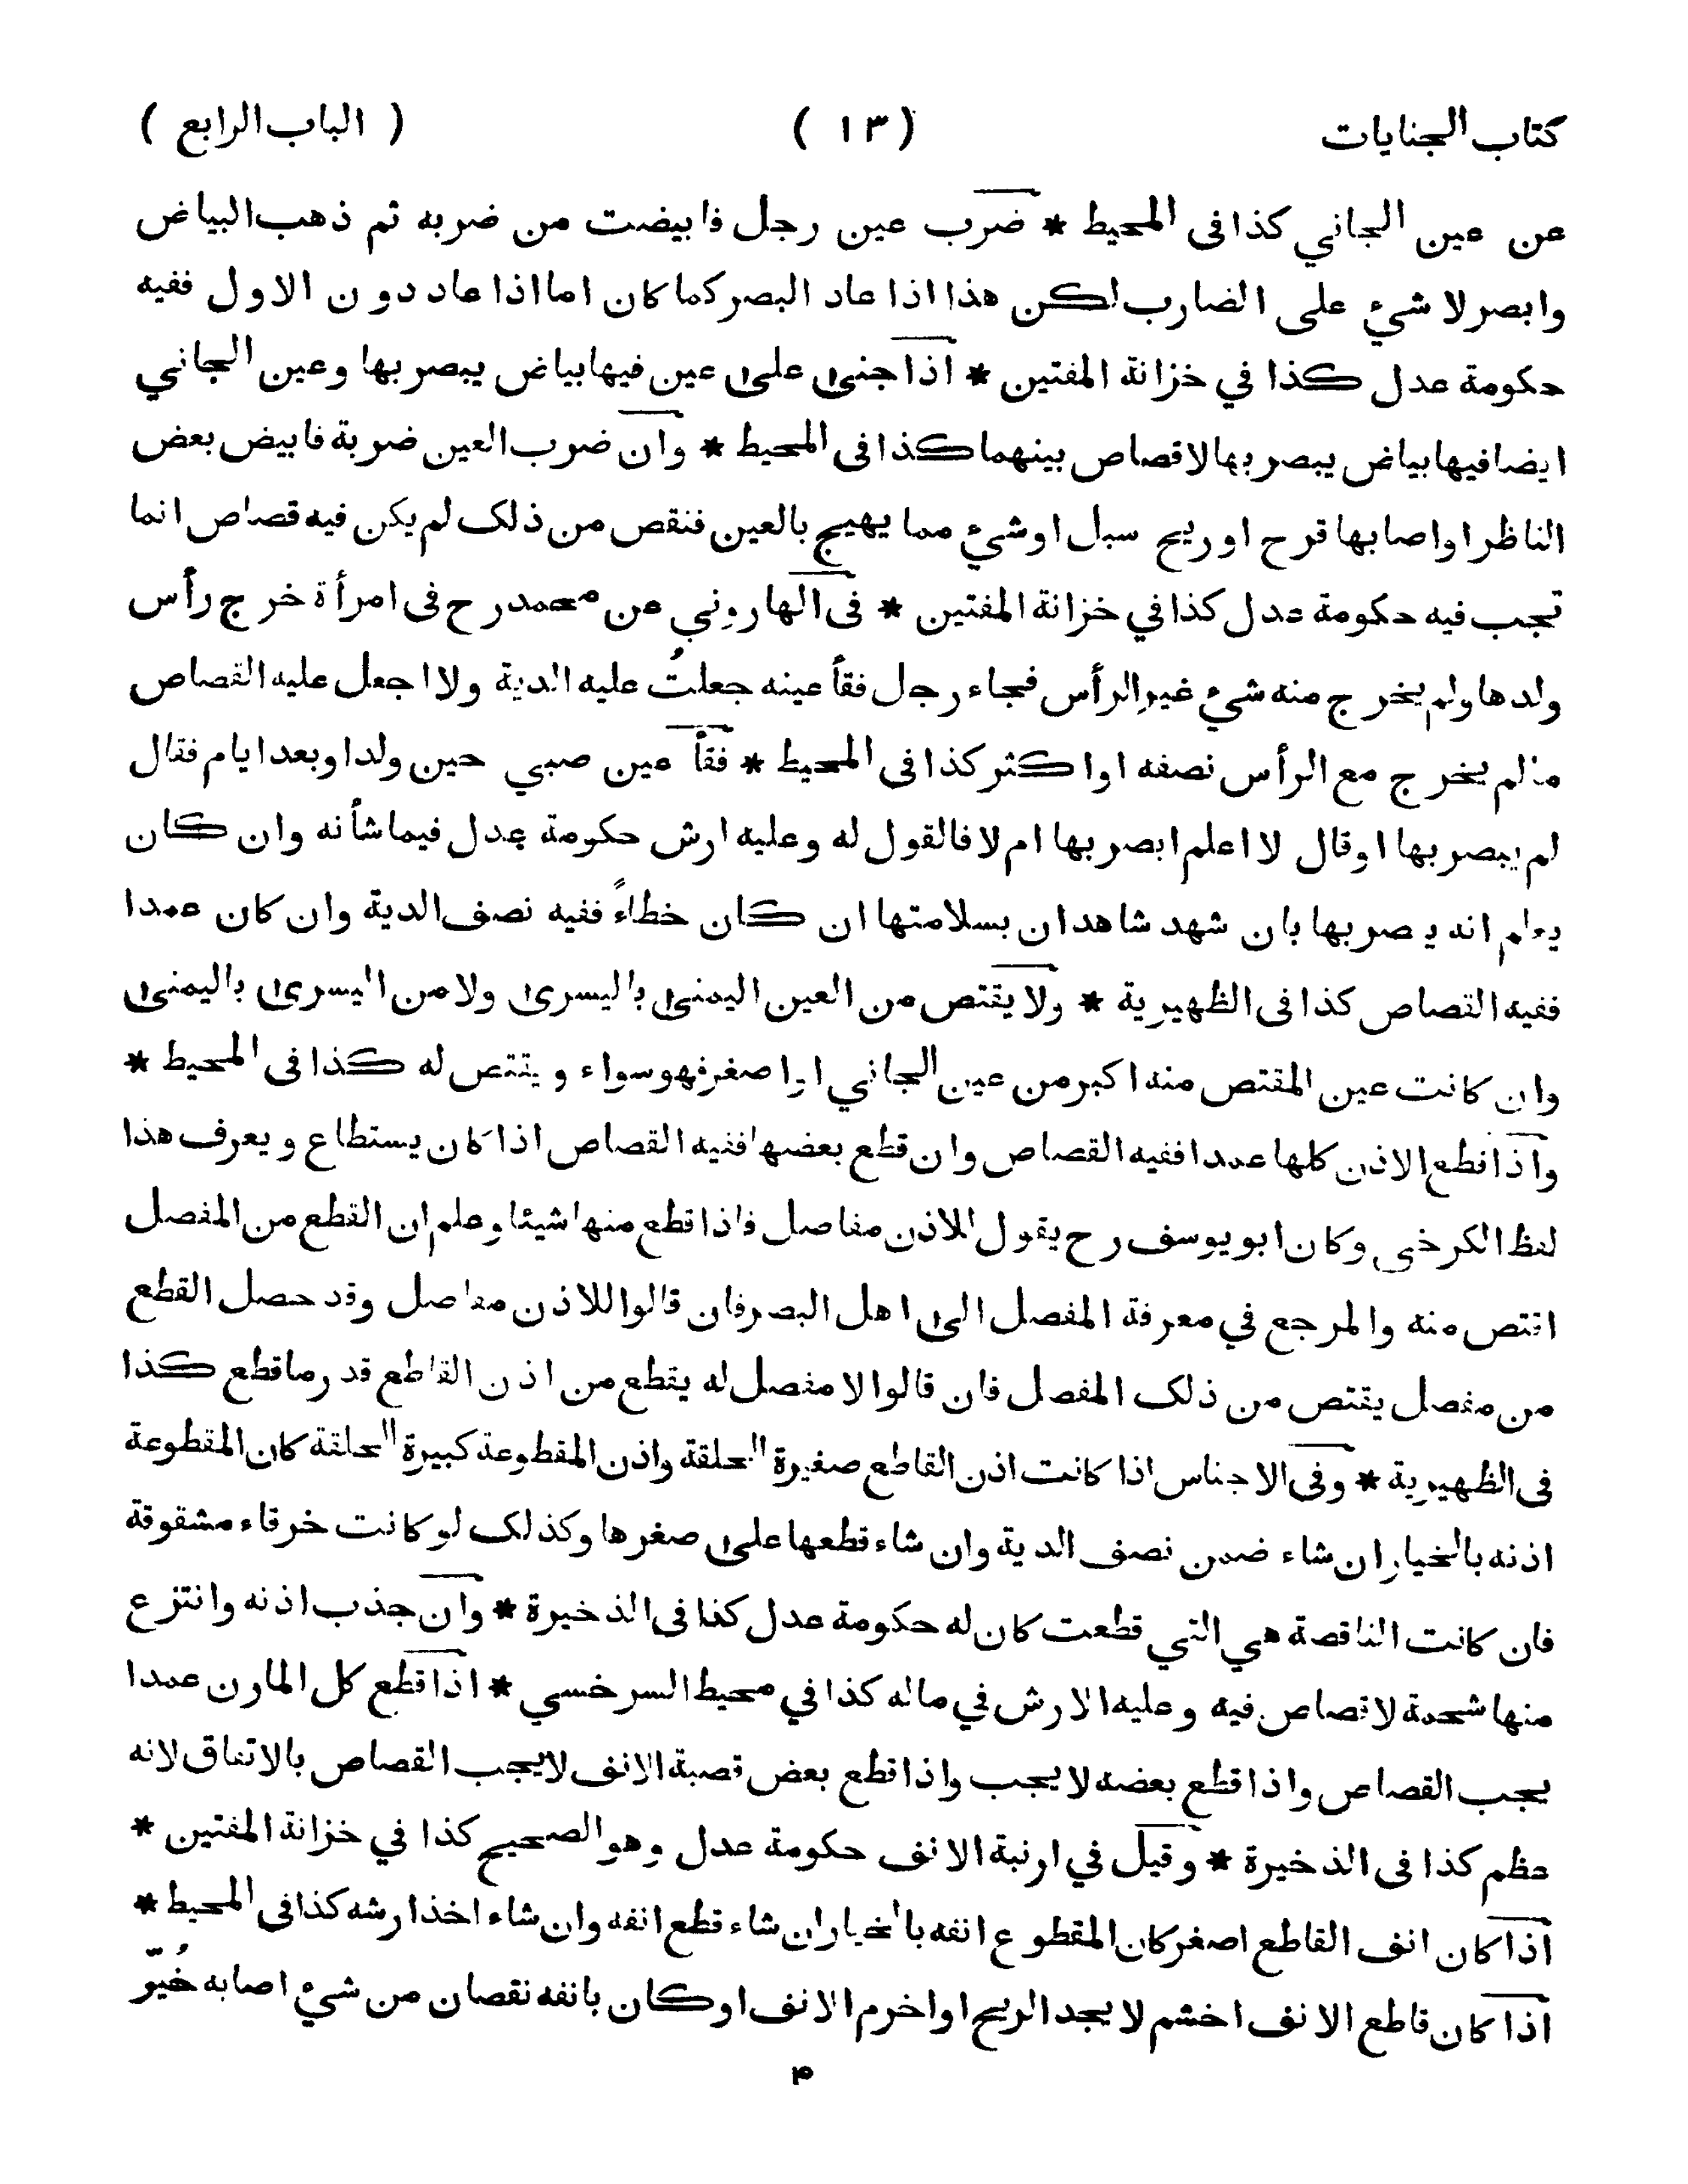 كتاب الجنايات ( ١٣ ) ( الباب الرابع )
عن عين الجاني كذا فى المحيط * ضرب عين رجل فابيضت من ضربه ثم ذهب البياض
وابصر لا شيء على الضارب لكن هذا اذا عاد البصر كما كان اما اذا عاد دون الاول ففيه
حكومة عدل كذا في خزانة المفتين * اذا جنى على عين فيها بياض يبصر بها وعين الجاني
ايضا فيها بياض يبصر بها لا قصاص بينهما كذا فى المحيط * وان ضرب العين ضربة فابيض بعض
الناظر او اصابها قرح او ريح سبل او شيء مما يهيج بالعين فنقص من ذلك لم يكن فيه قصاص انما
تجب فيه حكومة عدل كذا في خزانة المفتين * فى الهاروني عن محمد رح فى امرأة خرج رأس
ولدها ولم يخرج منه شيء غير الرأس فجاء رجل فقأ عينه جعلتُ عليه الدية ولا اجعل عليه القصاص
ما لم يخرج مع الرأس نصفه او اكثر كذا فى المحيط * فقأ عين صبي حين ولد او بعد ايام فقال
لم يبصر بها او قال لا اعلم ابصر بها ام لا فالقول له وعليه ارش حكومة عدل فيما شأنه وان كان
يعلم انه يبصر بها بان شهد شاهدان بسلامتها ان كان خطاءً ففيه نصف الدية وان كان عمدا
ففيه القصاص كذا فى الظهيرية * ولا يقتص من العين اليمنى باليسرى ولا من اليسرى باليمنى
وان كانت عين المقتص منه اكبر من عين الجاني او اصغر فهو سواء ويقتص له كذا فى المحيط *
واذا قطع الاذن كلها عمدا ففيه القصاص وان قطع بعضها ففيه القصاص اذا كان يستطاع ويعرف هذا
لفظ الكرخي وكان ابو يوسف رح يقول للاذن مفاصل فاذا قطع منها شيئا وعلم ان القطع من المفصل
اقتص منه والمرجع في معرفة المفصل الى اهل البصر فان قالوا للاذن مفاصل وقد حصل القطع
من مفصل يقتص من ذلك المفصل فان قالوا لا مفصل له يقطع من اذن القاطع قدر ما قطع كذا
فى الظهيرية * وفى الاجناس اذا كانت اذن القاطع صغيرة الخلقة واذن المقطوعة كبيرة الخلقة كان المقطوعة
اذنه بالخيار ان شاء ضمن نصف الدية وان شاء قطعها على صغرها وكذلك لو كانت خرقاء مشقوقة
فان كانت الناقصة هي التي قطعت كان له حكومة عدل كذا فى الذخيرة * وان جذب اذنه وانتزع
منها شحمة لا قصاص فيه وعليه الارش في ماله كذا في محيط السرخسي * اذا قطع كل المارن عمدا
يجب القصاص واذا قطع بعضه لا يجب واذا قطع بعض قصبة الانف لا يجب القصاص بالاتفاق لانه
عظم كذا فى الذخيرة * وقيل في ارنبة الانف حكومة عدل وهو الصحيح كذا في خزانة المفتين *
اذا كان انف القاطع اصغر كان المقطوع انفه بالخيار ان شاء قطع انفه وان شاء اخذ ارشه كذا فى المحيط *
اذا كان قاطع الانف اخشم لا يجد الريح او اخرم الانف او كان بانفه نقصان من شيء اصابه خُيّر
۴